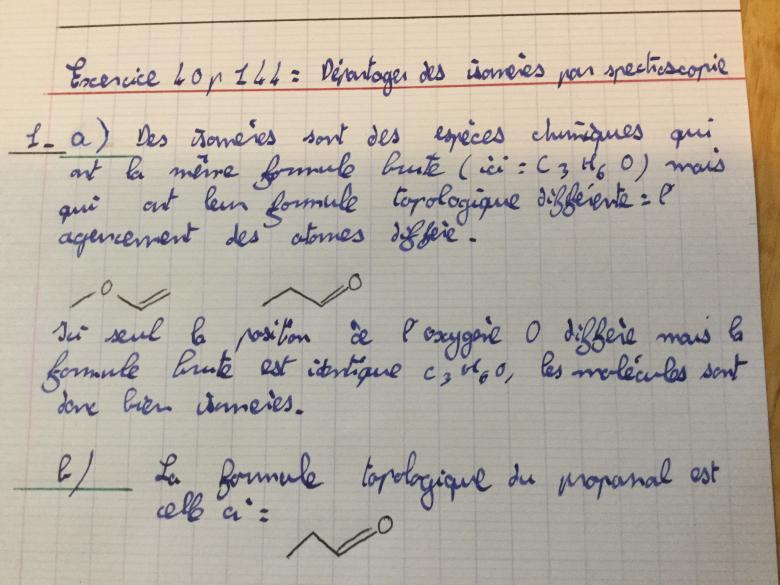 Exercice 40 p 144 : Départager des isomères par spectroscopie
1- a) Des isomères sont des espèces chimiques qui
ont la même formule brute (ici : C3H6O) mais
qui ont leur formule topologique différente : l'
agencement des atomes diffère.
O O
Ici seul la position de l'oxygène O diffère mais la
formule brute est identique C3H6O, les molécules sont
donc bien isomères.
b) La formule topologique du propanal est
celle ci :
O